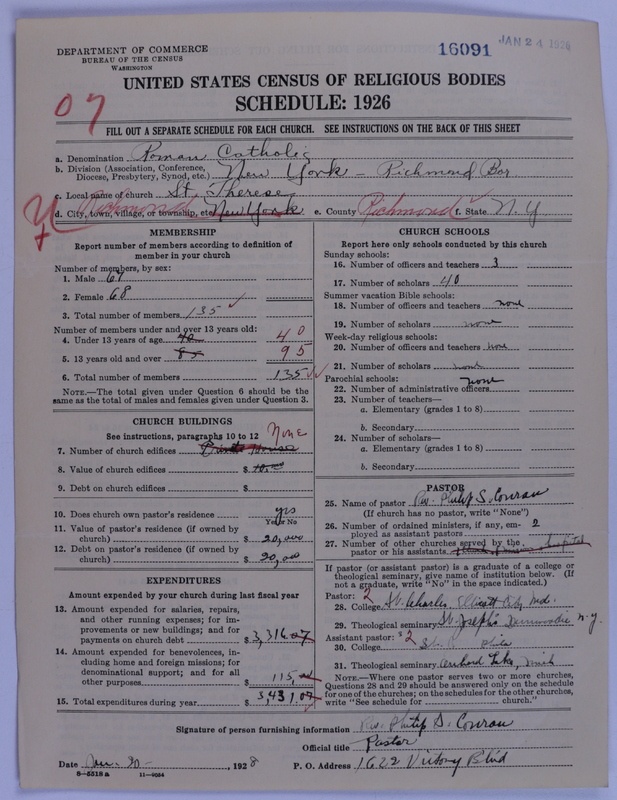 DEPARTMENT OF COMMERCE
BUREAU OF THE CENSUS
WASHINGTON
16091
JAN 24 1928
UNITED STATES CENSUS OF RELIGIOUS BODIES
SCHEDULE: 1926
07
FILL OUT A SEPARATE SCHEDULE FOR EACH CHURCH. SEE INSTRUCTIONS ON THE BACK OF THIS SHEET
a. Denomination Roman Catholic
b. Division (Association, Conference, Diocese, Presbytery, Synod, etc.) New York - Richmond Bor
c. Local name of church St. Therese
Richmond
d. City, town, village, or township, etc. New York e. County Richmond f. State N. Y
MEMBERSHIP
Report number of members according to definition of member in your church
Number of members, by sex:
1. Male 67
2. Female 68
3. Total number of members 135
Number of members under and over 13 years old:
4. Under 13 years of age 40 40
5. 13 years old and over 85 95
6. Total number of members 135
NOTE.—The total given under Question 6 should be the same as the total of males and females given under Question 3.
CHURCH BUILDINGS
See instructions, paragraphs 10 to 12 None
7. Number of church edifices Private House
8. Value of church edifices $
9. Debt on church edifices $
10. Does church own pastor's residence yes
Yes or No
11. Value of pastor's residence (if owned by church) $ 20,000
12. Debt on pastor's residence (if owned by church) $ 20,000
EXPENDITURES
Amount expended by your church during last fiscal year
13. Amount expended for salaries, repairs, and other running expenses; for improvements or new buildings; and for payments on church debt $ 3,316.07
14. Amount expended for benevolences, including home and foreign missions; for denominational support; and for all other purposes $ 115.00
15. Total expenditures during year $ 3,431.07
CHURCH SCHOOLS
Report here only schools conducted by this church
Sunday schools:
16. Number of officers and teachers 3
17. Number of scholars 40
Summer vacation Bible schools:
18. Number of officers and teachers none
19. Number of scholars none
Week-day religious schools:
20. Number of officers and teachers none
21. Number of scholars none
Parochial schools: none
22. Number of administrative officers
23. Number of teachers—
a. Elementary (grades 1 to 8)
b. Secondary
24. Number of scholars—
a. Elementary (grades 1 to 8)
b. Secondary
PASTOR
25. Name of pastor Rev. Philip S. Conran
(If church has no pastor, write "None")
26. Number of ordained ministers, if any, employed as assistant pastors 2
27. Number of other churches served by the pastor or his assistants hospital
If pastor (or assistant pastor) is a graduate of a college or theological seminary, give name of institution below. (If not a graduate, write "No" in the space indicated.)
Pastor: 2
28. College St. Charles, Ellicott City Md.
29. Theological seminary St. Joseph's Dunwoodie N.Y.
Assistant pastor: 2
30. College St.
31. Theological seminary Orchard Lake, Mich
NOTE.—Where one pastor serves two or more churches, Questions 28 and 29 should be answered only on the schedule for one of the churches; on the schedules for the other churches, write "See schedule for church."
Signature of person furnishing information Rev. Philip S. Conran
Official title Pastor
Date Jan. 20 , 1928 P. O. Address 1622 Victory Blvd
8—5518a 11—9054